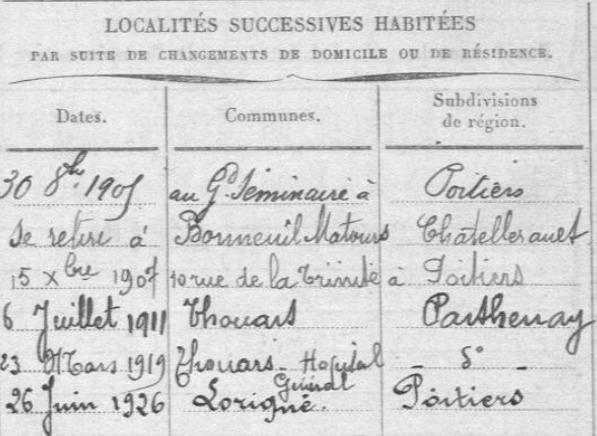 LOCALITÉS SUCCESSIVES HABITÉES
PAR SUITE DE CHANGEMENTS DE DOMICILE OU DE RÉSIDENCE.
Dates. Communes. Subdivisions de région.
30 8bre 1905 au Gd Séminaire à Poitiers
se retire à Bonneuil Matours Châtellerault
15 Xbre 1907 10 rue de la Trinité à Poitiers
6 Juillet 1911 Thouars Parthenay
23 Mars 1919 Thouars - Hopital Général - do -
26 Juin 1926 Lorigné. Poitiers